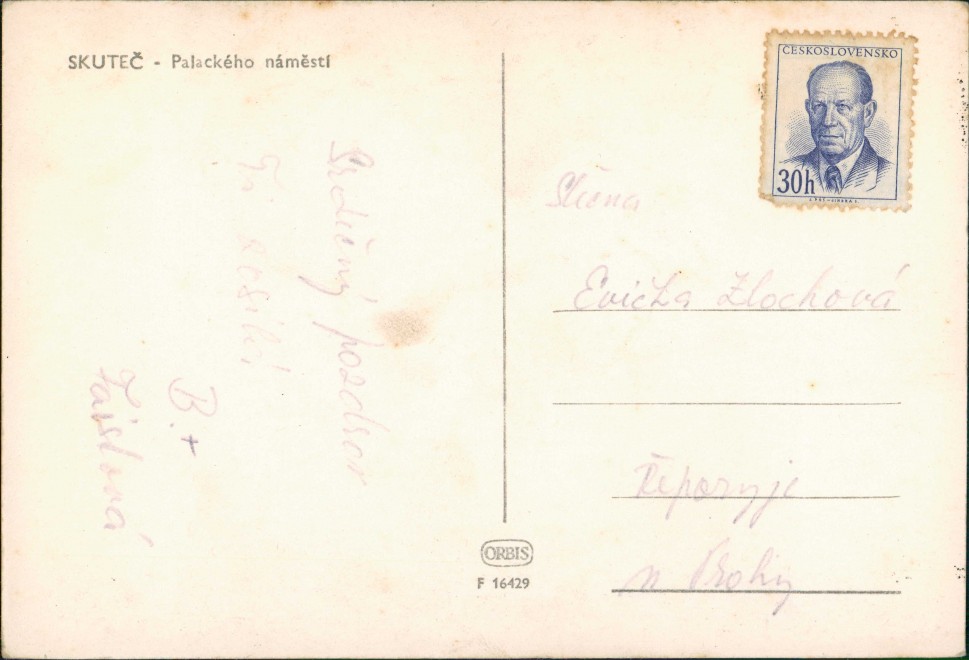 SKUTEČ - Palackého náměstí
Srdečný pozdrav
Ti zasílá
B.+
ČESKOSLOVENSKO
30h
Slečna
Evička Zlochová
Řeporyje
u Prahy
ORBIS
F 16429